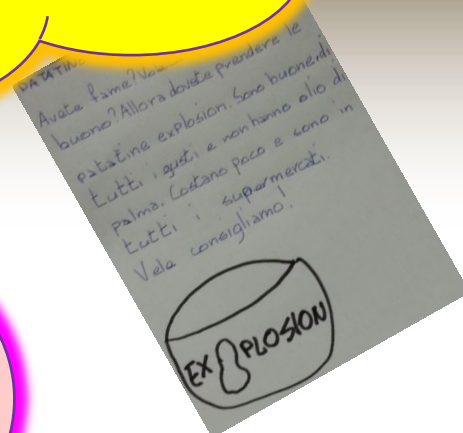 PATATINE
Avete fame?
buono? Allora dovete prendere le
patatine explosion. Sono buone, di
tutti i gusti e non hanno olio di
palma. Costano poco e sono in
tutti i supermercati.
Vele consigliamo!
EXPLOSION